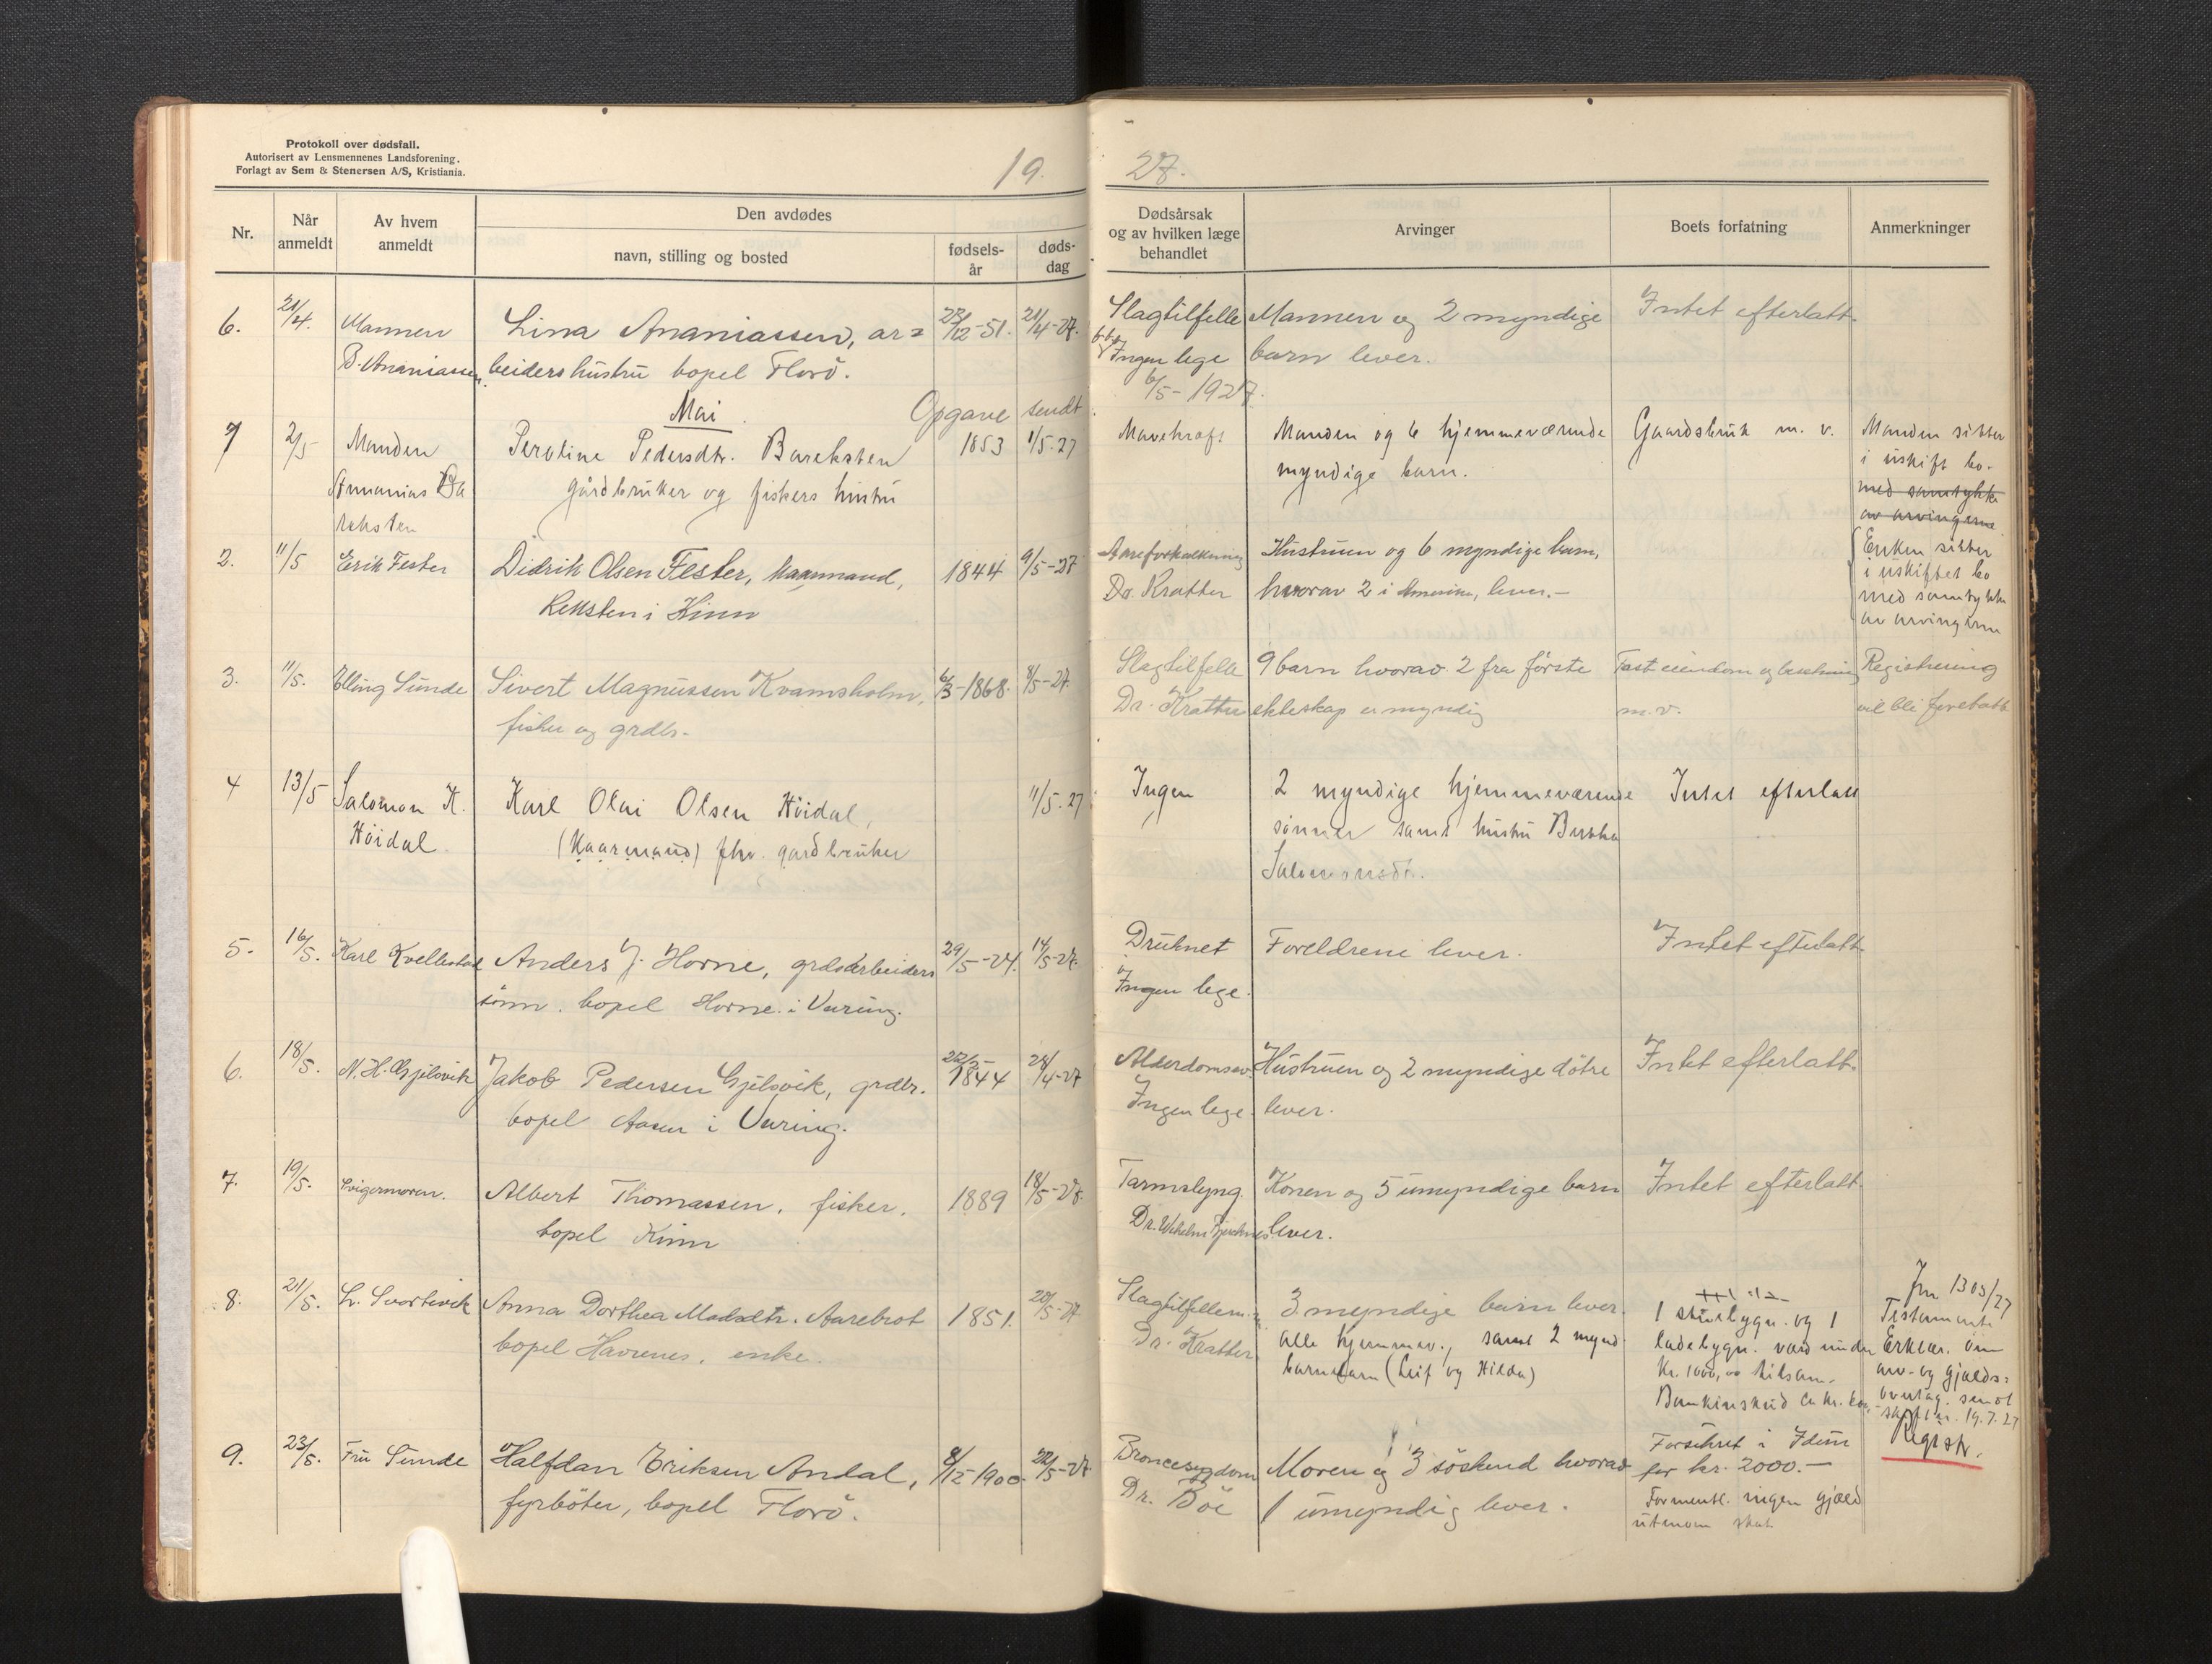 Protokoll over dødsfall.
Autorisert av Lensmennenes Landsforening.
Forlagt av Sem & Stenersen A/S, Kristiania.
19 27.
Nr.
Når anmeldt
Av hvem anmeldt
Den avdødes
navn, stilling og bosted
fødsels-år
døds-dag
Dødsårsak og av hvilken læge behandlet
Arvinger
Boets forfatning
Anmerkninger
6. 21/4. Mannen Lina Ananiassen, ar= 23/12-51. 21/4-27. Slagtilfelle Mannen og 2 myndige Intet efterlatt.
B. Ananiassen. beiders hustru bopel Florö. Ingen lege barn lever.
Mai. Opgave sendt 6/5-1927.
7 2/5 Manden Peroline Pedersdtr. Bareksten 1853 1/5.27 Mavekræft Manden og 6 hjemmeværende Gaardsbruk m. v. Manden sitter
Annanias Ba gårdbruker og fiskers hustru myndige barn. i uskift bo.
reksten med samtykke
av arvingerne
2. 11/5 Erik Fester Didrik Olsen Fester, kaarmand, 1844 9/5-27 Aareforkalkning Hustruen og 6 myndige barn, Enken sitter
Reksten i Kinn Dr. Kratter hvorav 2 i Amerika, lever.- i uskiftet bo
med samtykke
av arvingerne
3. 11/5. Elling Sunde Sivert Magnussen Kvamsholm, 6/3-1868. 8/5-27. Slagtilfelle 9 barn hvorav 2 fra förste Fast eiendom og besetning Registrering
fisker og grdbr. Dr. Kratter ekteskap er myndig m.v. vil bli foretatt
4 13/5 Salomon K. Karl Olai Olsen Höidal, 11/5.27 Ingen 2 myndige hjemmeværende Intet efterlatt
Höidal (Kaarmand) fhv. gardbruker sönner samt hustru Bertha
Salomonsdt.
5. 16/5. Karl Kvellestad Anders J. Horne, grdsarbeiders 29/5-24. 14/5-27. Druknet Foreldrene lever. Intet efterlatt
sönn. bopel Horne i Vævring. Ingen lege.
6. 18/5. N. H. Gjelsvik Jakob Pedersen Gjelsvik, grdbr. 22/5 1844 24/4-27 Alderdomssv. Hustruen og 2 myndige dötre Intet efterlatt.
bopel Aasen i Vævring. Ingen lege. lever.
7. 19/5. Svigermoren. Albert Thomassen, fisker. 1889 18/5-27. Tarmslyng. Konen og 5 umyndige barn Intet efterlatt
bopel Kinn Dr. lever.
8. 21/5. L. Svortevik Anna Dorthea Madsdtr. Aarebrot 1851. 20/5-27 Slagtilfelle 3 myndige barn lever. 1 stuebygn. og 1 Jnr 1303/27
bopel Havrenes. enke. Dr. Kratter alle hjemmev., samt 2 mynd. ladebygn. værd under Testamente
barnebarn (Leif og Hilda) kr. 1000,00 tilsam. Erklær. om
Bankinskud ca kr. arv- og gjælds=
overtag. sendt
skiftr. 19.7.27
9. 23/5. Fru Sunde Halfdan Eriksen Andal, 8/12-1900. 22/5-27. Broncesygdom Moren og 3 söskend hvorav Forsikret i Idun Registr.
fyrböter, bopel Florö. Dr. Böe 1 umyndig lever. for kr. 2000.-
Formentl. ingen gjæld
utenom skat